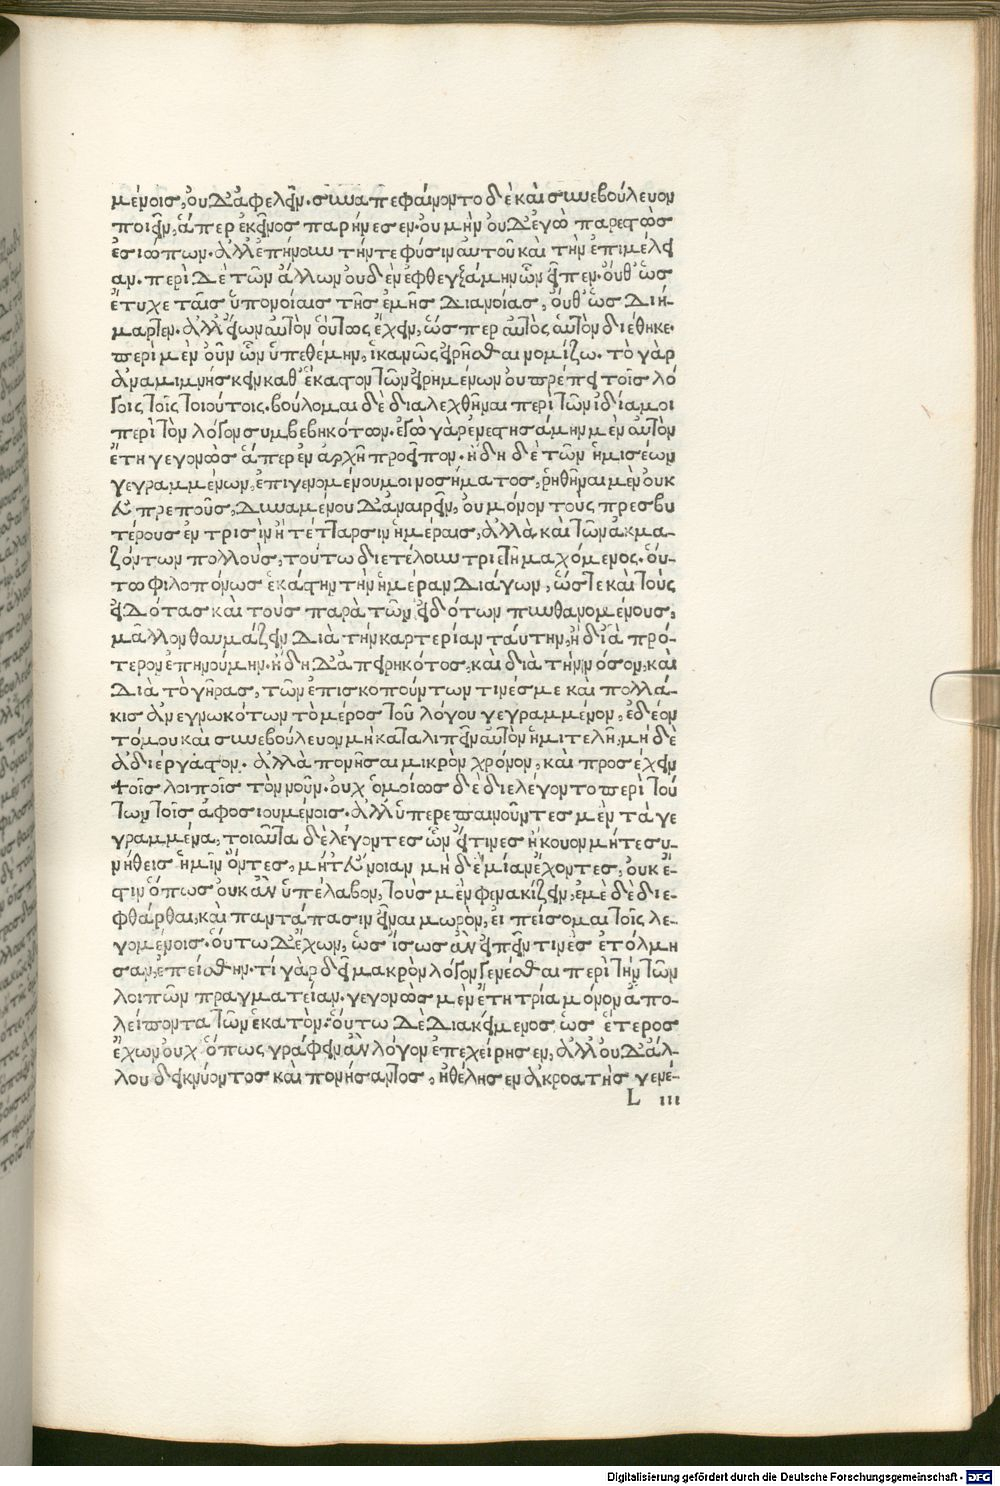 μένοις, οὐ δ᾽ ἀφελεῖν. συναπεφαίνοντο δὲ καὶ συνεβούλευον
ποιεῖν, ἅπερ ἐκεῖνος παρῄνεσεν. οὐ μὴν οὐ δ᾽ ἐγὼ παρεστὼς
ἐσιώπων. ἀλλ᾽ ἐπῄνουν τήν τε φύσιν αὐτοῦ καὶ τὴν ἐπιμέλει
αν. περὶ δὲ τῶν ἄλλων οὐδὲν ἐφθεγξάμην ὧν εἶπεν. οὔθ᾽ ὡς
ἔτυχε ταῖς ὑπονοίαις τῆς ἐμῆς διανοίας, οὔθ᾽ ὡς διή-
μαρτεν. ἀλλ᾽ εἴων αὐτὸν οὕτως ἔχειν, ὥσπερ αὐτὸς αὑτὸν διέθηκε.
περὶ μὲν οὖν ὧν ὑπεθέμην, ἱκανῶς εἰρῆσθαι νομίζω. τὸ γὰρ
ἀναμιμνήσκειν καθ᾽ ἕκαστον τῶν εἰρημένων οὐ πρέπει τοῖς λό
γοις τοῖς τοιούτοις. βούλομαι δὲ διαλεχθῆναι περὶ τῶν ἰδίᾳ μοι
περὶ τὸν λόγον συμβεβηκότων. ἐγὼ γὰρ ἐνεστησάμην μὲν αὐτὸν
ἔτη γεγονὼς ἅπερ ἐν ἀρχῇ προεῖπον. ἤδη δὲ τῶν ἡμισέων
γεγραμμένων, ἐπιγενομένου μοι νοσήματος, ῥηθῆναι μὲν οὐκ
εὐπρεποῦς, δυναμένου δ᾽ ἀναιρεῖν, οὐ μόνον τοὺς πρεσβυ
τέρους ἐν τρισὶν ἢ τέτταρσιν ἡμέραις, ἀλλὰ καὶ τῶν ἀκμα-
ζόντων πολλοὺς, τούτῳ διετέλουν τρί᾽ ἔτη μαχόμενος. οὕ-
τω φιλοπόνως ἑκάστην τὴν ἡμέραν διάγων, ὥστε καὶ τοὺς
εἰδότας καὶ τοὺς παρὰ τῶν εἰδότων πυνθανομένους,
μᾶλλον θαυμάζειν διὰ τὴν καρτερίαν ταύτην, ἢ δι᾽ ἃ πρό-
τερον ἐπῃνούμην. ἤδη δ᾽ ἀπειρηκότος, καὶ διὰ τὴν νόσον, καὶ
διὰ τὸ γῆρας, τῶν ἐπισκοπούντων τινές με καὶ πολλά-
κις ἀνεγνωκότων τὸ μέρος τοῦ λόγου γεγραμμένον, ἐδέον
τό μου καὶ συνεβούλευον μὴ καταλιπεῖν αὐτὸν ἡμιτελῆ, μηδὲ
ἀδιέργαστον. ἀλλὰ πονῆσαι μικρὸν χρόνον, καὶ προσέχειν
τοῖς λοιποῖς τὸν νοῦν. οὐχ ὁμοίως δὲ διελέγοντο περὶ τού
των τοῖς ἀφοσιουμένοις. ἀλλ᾽ ὑπερεπαινοῦντες μὲν τὰ γε
γραμμένα, τοιαῦτα δὲ λέγοντες ὧν εἴ τινες ἤκουον μήτε συ-
νήθεις ἡμῖν ὄντες, μήτ᾽ εὔνοιαν μηδεμίαν ἔχοντες, οὐκ ἔ-
στιν ὅπως οὐκ ἂν ὑπέλαβον, τοὺς μὲν φενακίζειν, ἐμὲ δὲ διε-
φθάρθαι, καὶ παντάπασιν εἶναι μωρὸν, εἰ πείσομαι τοῖς λε-
γομένοις. οὕτω δ᾽ ἔχων, ὡς ἴσως ἂν εἰπεῖν τινὲς ἐτόλμη
σαν, ἐπείσθην. τί γὰρ δεῖ μακρὸν λόγον γενέσθαι περὶ τὴν τῶν
λοιπῶν πραγματείαν. γεγονὼς μὲν ἔτη τρία μόνον ἀπο-
λείποντα τῶν ἑκατὸν. οὕτω δὲ διακείμενος, ὡς ἕτερος
ἔχων οὐχ ὅπως γράφειν ἂν λόγον ἐπεχείρησεν, ἀλλ᾽ οὐ δ᾽ ἄλ-
λου δεικνύοντος καὶ πονήσαντος, ἠθέλησεν ἀκροατὴς γενέ-
L iii
Digitalisierung gefördert durch die Deutsche Forschungsgemeinschaft - DFG